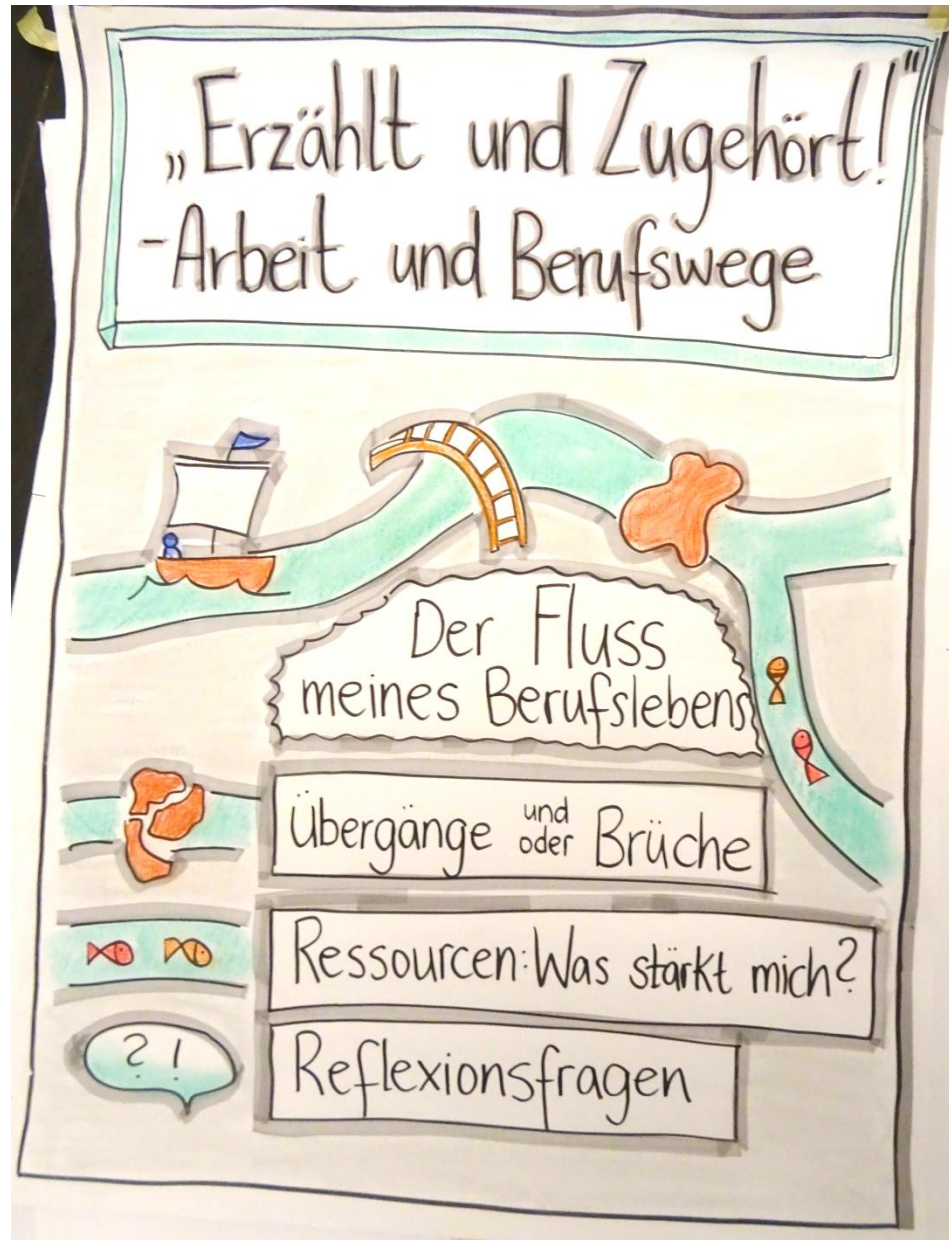 „Erzählt und Zugehört!“
-Arbeit und Berufswege
Der Fluss
meines Berufslebens
Übergänge und oder Brüche
Ressourcen: Was stärkt mich?
? !
Reflexionsfragen